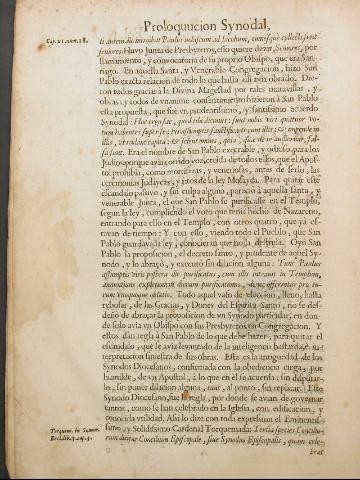 Proloquucion Synodal,
Cap. 21. num. 18.
ti autem die introibat Paulus nobiscum ad Iacobum, omnesque collecti sunt
seniores. Huvo Junta de Presbyteros, esso quiere dezir, Seniores, por
llamamiento, y convocatoria de su proprio Obispo, que era San-
tiago. En aquella Santa, y Venerable Congregacion, hizo San
Pablo exacta relacion de todo lo que hasta alli avia obrado. Die-
ron todos gracias à la Divina Magestad por tales maravillas, y
obras: y todos de vnanime consentimiento hizieron à San Pablo
esta propuesta, que fue vn prudentissimo, y santissimo acuerdo
Synodal: Hoc ergo fac, quod tibi dicimus: sunt nobis viri quatuor vo-
tum habentes super se; his assumptis sanctifica te cum illis: & impende in
illis, vt radant capita: & scient omnes, quia, quæ de te audierunt, fal-
sa sunt. Era el nombre de San Pablo execrable, y odioso para los
Judios; porque avia corrido voz, crecida de todos ellos, que el Apos-
tol prohibia, como mortiferas, y venenosas, antes de serlo, las
ceremonias Judaycas, y ritos de la ley Mosayca. Para quitar este
escandalo passivo, y sin culpa alguna, pareciò à aquella santa, y
venerable Junta, el que San Pablo se purificasse en el Templo,
segun la ley, cumpliendo el voto que tenia hecho de Nazareno,
entrando para ello en el Templo, con otros quatro, que yà es-
tavan de tiempo: Y con esso, viendo todo el Pueblo, que San
Pablo guardava la ley, conocieran que no la destruia. Oyò San
Pablo la proposicion, el decreto santo, y prudente de aquel Sy-
nodo, y lo abraçò, y executò sin dilacion alguna: Tunc Paulus
assumptis viris postera die purificatus, cum illis intravit in Templum,
annuntians expletionem dierum purificationis, donec offerretur pro eo-
rum vnoquoque oblatio. Todo aquel vaso de eleccion, lleno, hasta
rebosar, de las Gracias, y Dones del Espiritu Santo, no se des-
deñò de abraçar la proposicion de vn Synodo particular, en don-
de solo avia vn Obispo con sus Presbyteros en Congregacion. Y
estos dàn regla à San Pablo de lo que debe hazer, para quitar el
escandalo, que se avia levantado de la inteligencia bastarda, è in-
terpretacion siniestra de sus obras. Esta es la antiguedad de los
Synodos Diocesanos; confirmada con la obediencia ciega, por
humilde, de vn Apostol, à lo que en èl se acuerda: sin disputar-
lo, sin poner dilacion alguna, sino al punto, sin replicar. Este
Synodo Diocesano, fue la regla, por donde se avian de governar
tantos, como se han celebrado en la Iglesia, con edificacion, y
notoria vtilidad. Assi lo dize con toda expression el Eminentis-
Turquem. in Summ.
simo, y Solidissimo Cardenal Torquemada: Tertia species Concilio-
Eccl. lib. 3. cap. 3.
rum dicitur Concilium Episcopale, sive Synodus Episcopalis, quam cele-
brat